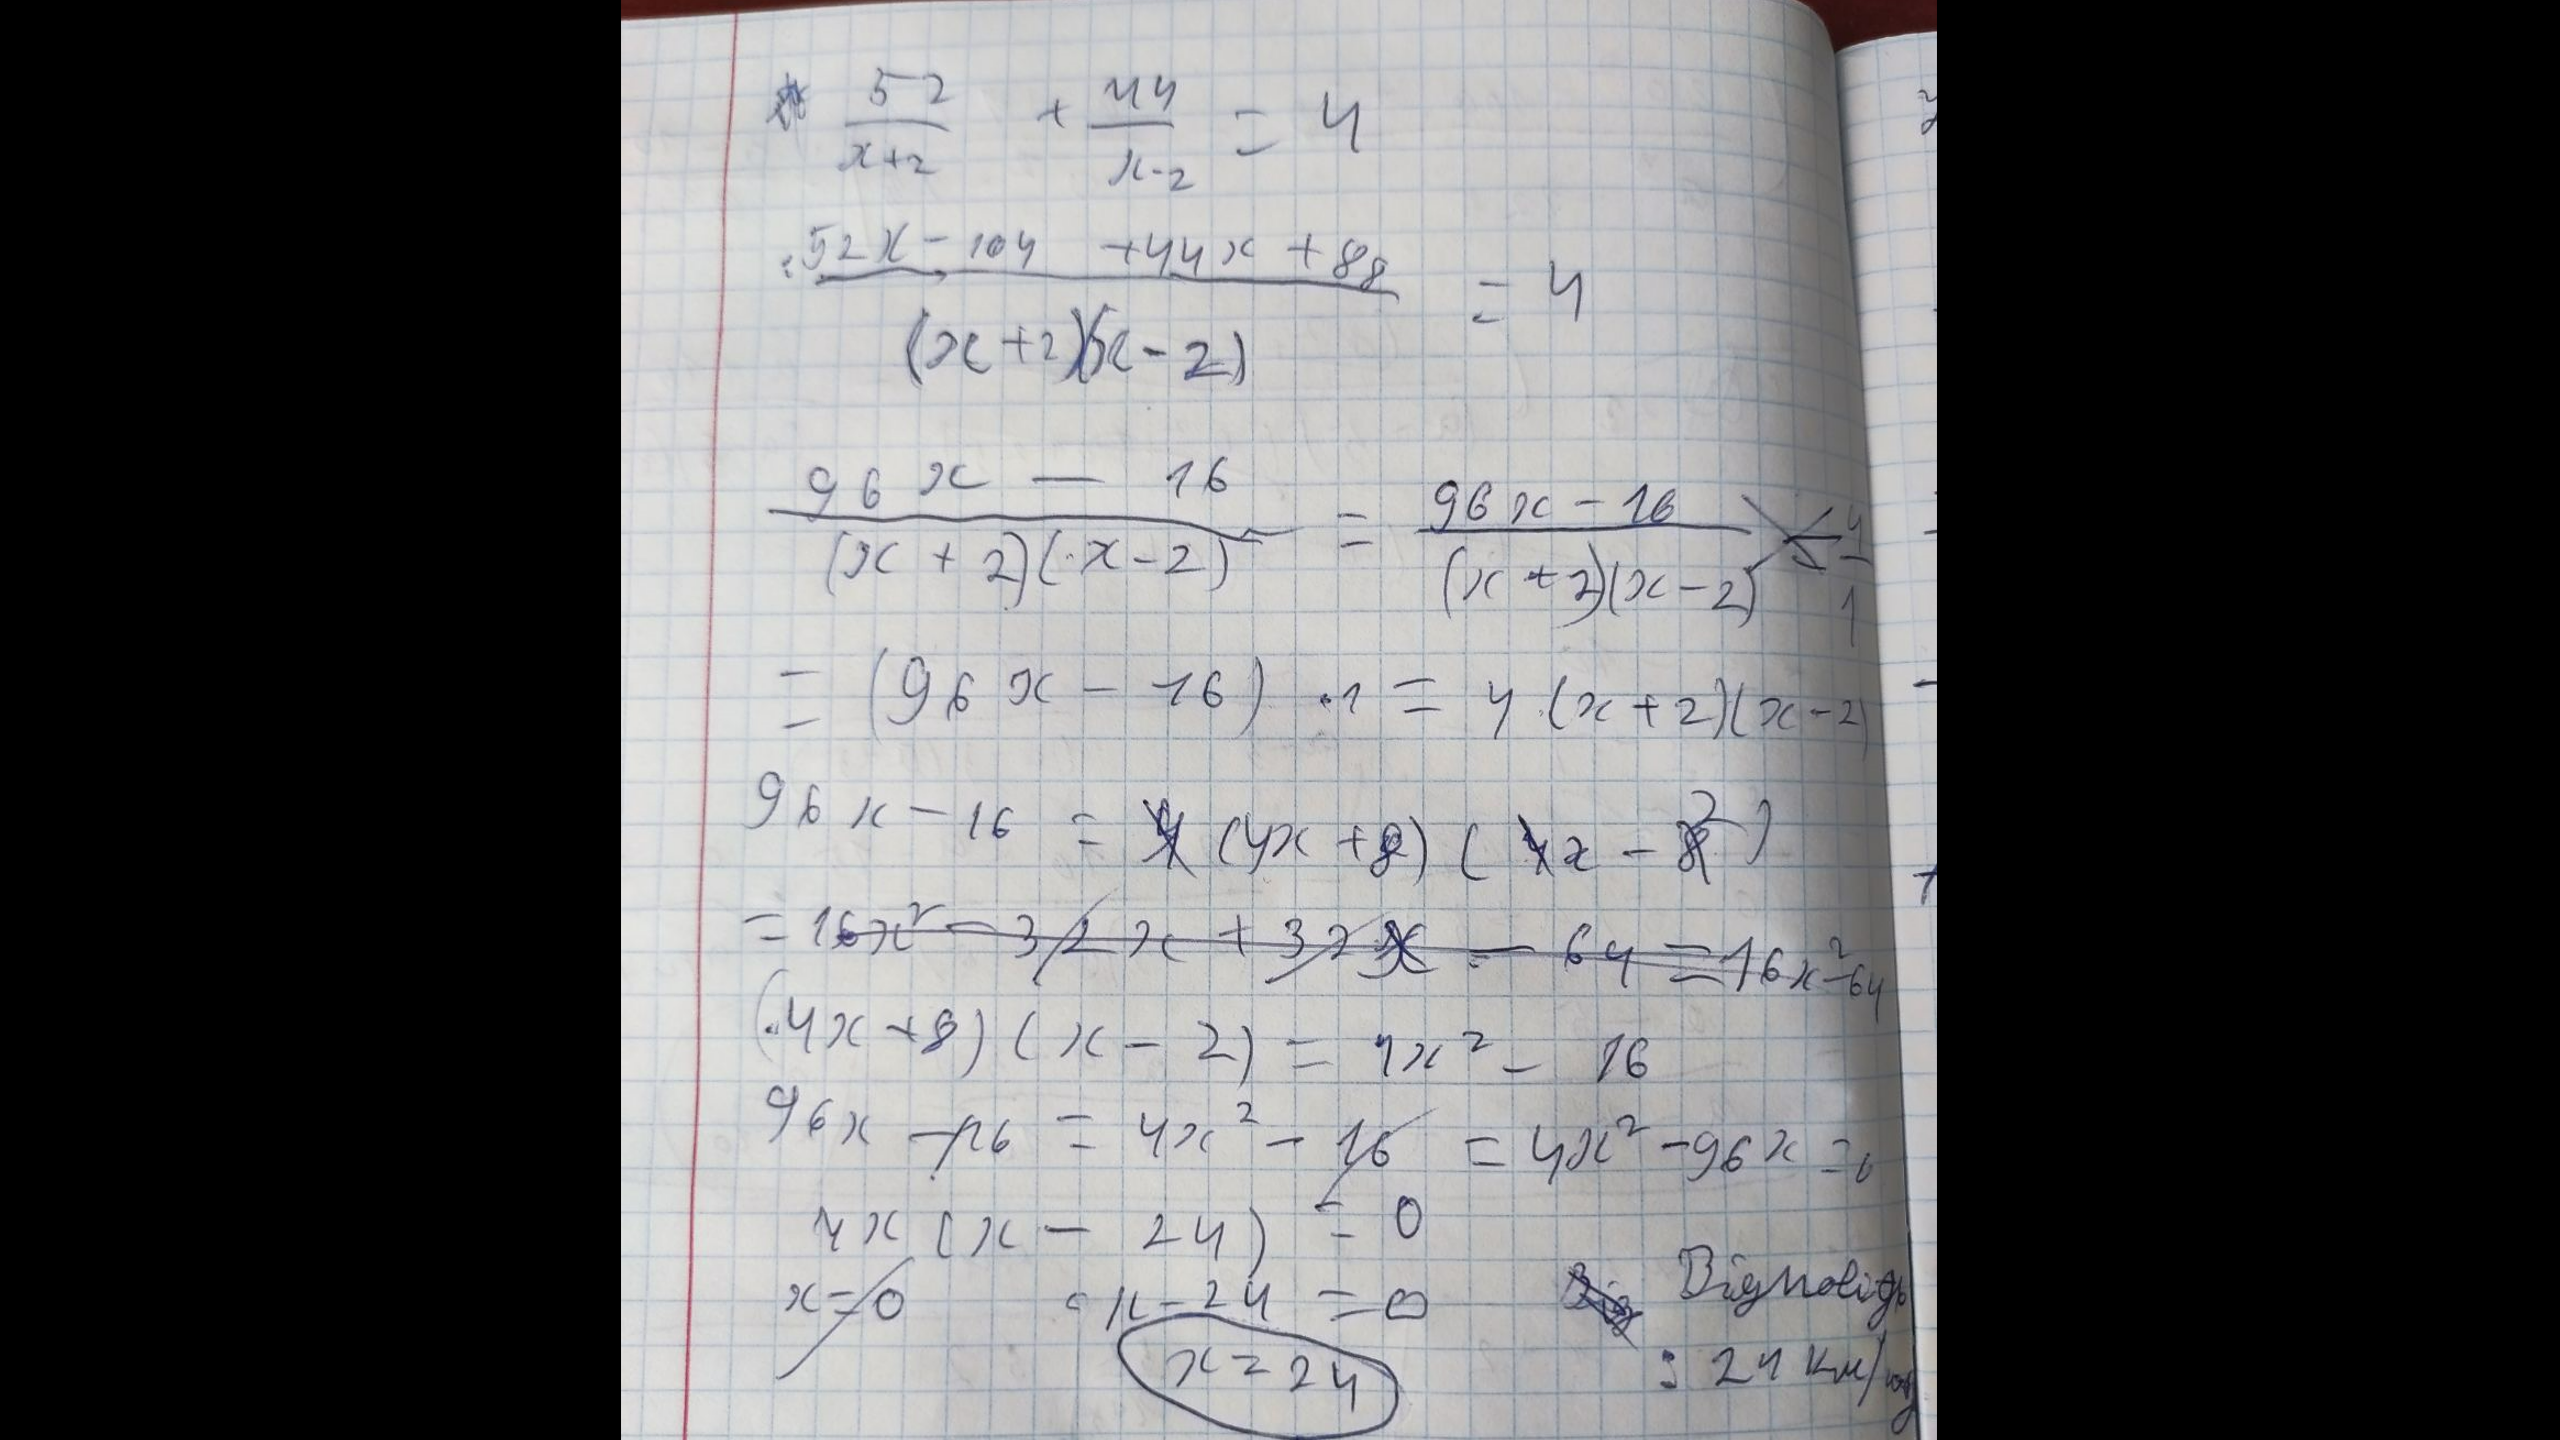 52/(x+2) + 44/(x-2) = 4
(52x - 104 + 44x + 88)/((x+2)(x-2)) = 4
(96x - 16)/((x+2)(x-2)) = (96x - 16)/((x+2)(x-2)) = 4/1
= (96x - 16) · 1 = 4 · (x+2)(x-2)
96x - 16 = (4x+8)(x - 2)
= 16x² - 32x + 32x - 64 = 16x² - 64
(4x+8)(x - 2) = 4x² - 16
96x - 16 = 4x² - 16 = 4x² - 96x = 0
4x(x - 24) = 0
x = 0 x - 24 = 0
x = 24
Відповідь
: 24 км/год